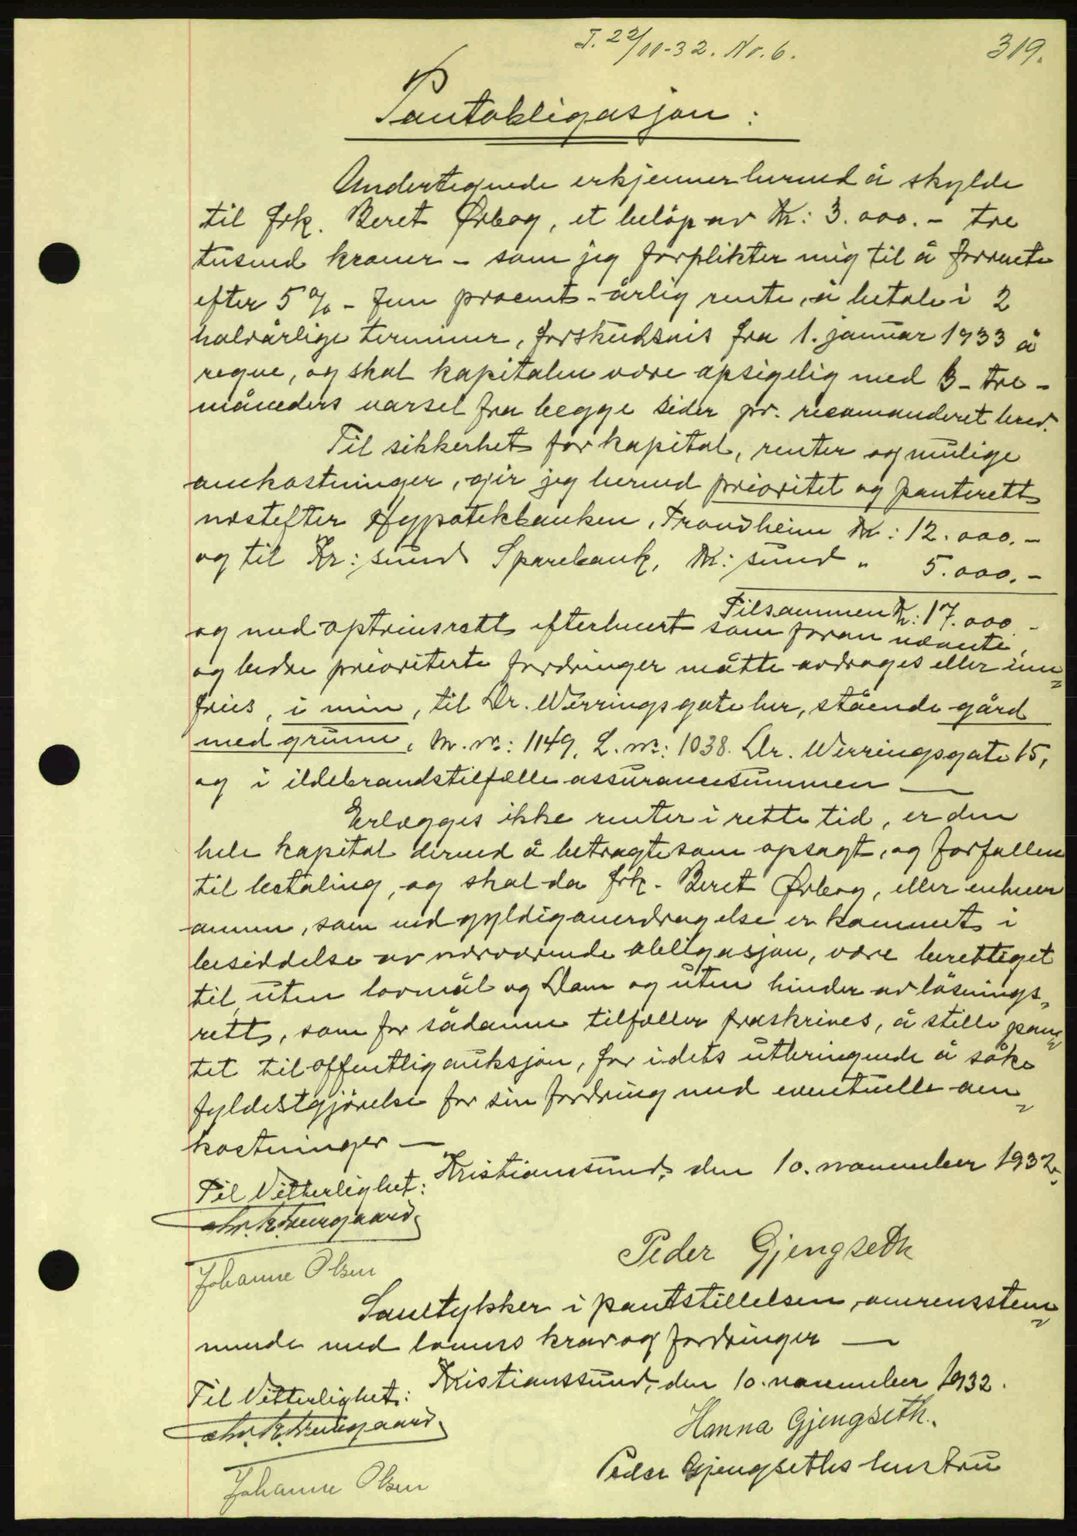 T. 22/11-32. No. 6.
319.
Pantobligasjon:
Undertegnede erkjenner herved å skylde
til frk. Beret Ørbog, et beløp av Kr: 3.000.- tre
tusend kroner - som jeg forplikter mig til å forrente
efter 5% - fem procent - årlig rente, å betale i 2
halvårlige terminer, forskudsvis fra 1. januar 1933 å
regne, og skal kapitalen være opsigelig med 3 - tre -
måneders varsel fra begge sider pr. recomanderet brev.
Til sikkerhet for kapital, renter og mulige
omkostninger, gir jeg herved prioritet og panterett
nestefter Hypotekbanken, Trondheim Kr: 12.000.-
og til Kr:sund Sparebank, Kr:sund " 5.000.-
Tilsammen Kr: 17.000.-
og med optrinsrett efterhvert som foran nævnte,
og bedre prioriterte fordringer måtte avdrages eller inn=
fries, i min, til Dr. Werringsgate her, stående gård
med grunn, M.nr: 1149, L.nr: 1038. Dr. Werringsgate 15,
og i ildebrandstilfælle assurancesummen —
Erlægges ikke renter i rette tid, er den
hele kapital dermed å betragte som opsagt, og forfallen
til bestaling, og skal da frk. Beret Ørbog, eller enhver
annen, som ved gyldig overdragelse er kommet i
besiddelse av nærværende obligasjon, være berettiget
til, uten lovmål og Dom og uten hinder av løsnings=
rett, som for sådanne tilfæller fraskrives, å stille pan=
tet til offentlig auksjon, for i dets utbringende å søke
fyldestgjørelse for sin fordring med eventuelle om=
kostninger —
Kristianssund, den 10. november 1932.
Til Vitterlighet:
Peder Gjengseth
Johanne Olsen
Samtykker i pantstillelsen, overensstem=
mende med lovens krav og fordringer —
Kristianssund, den 10. november 1932.
Til Vitterlighet:
Hanna Gjengseth.
Peder Gjengseths hustru
Johanne Olsen